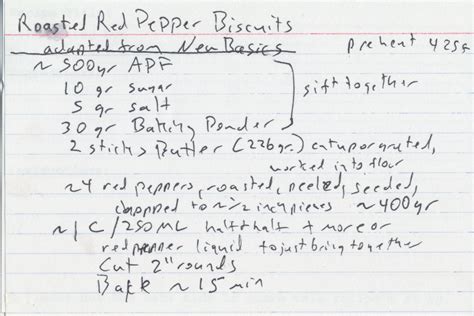 Roasted Red Pepper Biscuits
adapted from New Basics preheat 425F
~ 500gr APF
10 gr sugar
5 gr salt
30 gr Baking Powder
sift together
2 sticks Butter (226gr.) cut up or grated,
worked into flour
~4 red peppers, roasted, peeled, seeded,
chopped to ~1/2 inch pieces ~400gr
~1 C/250ML half & half + more or
red pepper liquid to just bring together
Cut 2" rounds
Bake ~15 min